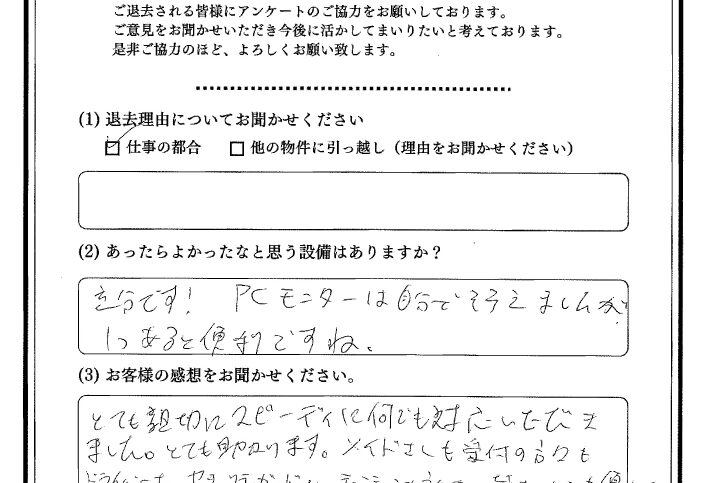 ご退去される皆様にアンケートのご協力をお願いしております。
ご意見をお聞かせいただき今後に活かしてまいりたいと考えております。
是非ご協力のほど、よろしくお願い致します。
(1) 退去理由についてお聞かせください
☑ 仕事の都合 □ 他の物件に引っ越し（理由をお聞かせください）
(2) あったらよかったなと思う設備はありますか？
充分です！ PCモニターは自分でそろえましたが
1つあると便利ですね。
(3) お客様の感想をお聞かせください。
とても親切にスピーディに何でも対応いただき
ました。とても助かります。メイドさんも受付の方々も